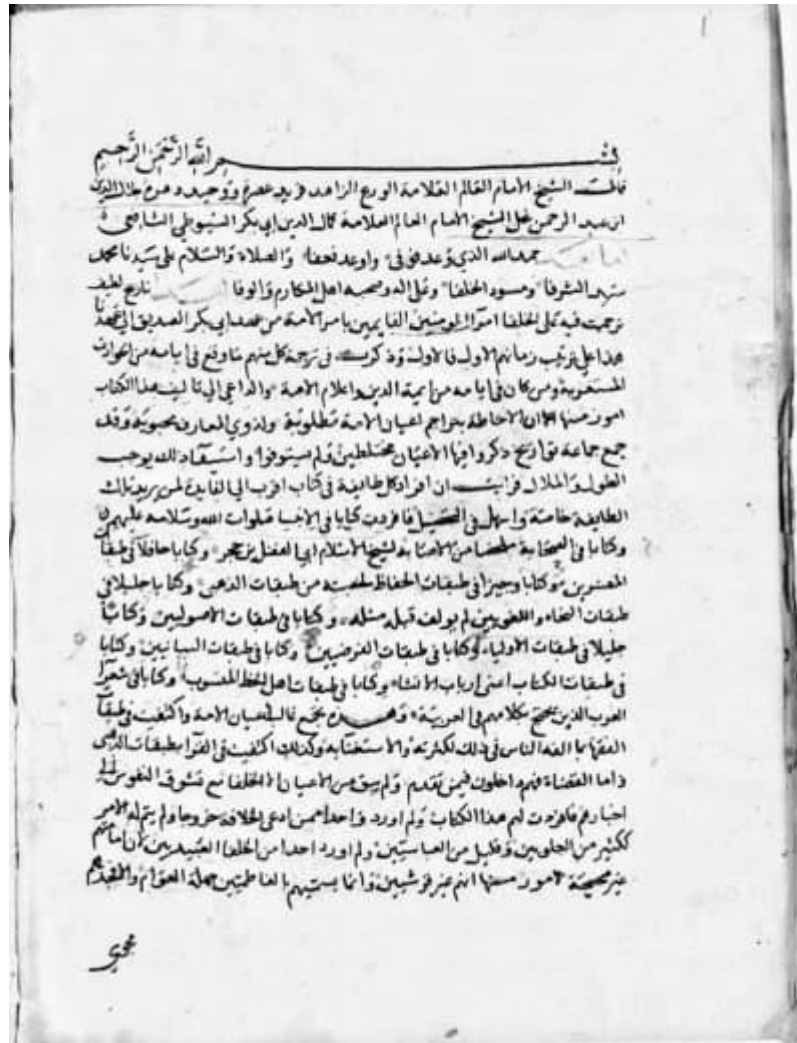 بسم الله الرحمن الرحيم
قال الشيخ الامام العالم العلامة الورع الزاهد فريد عصره ووحيد دهره جلال الدين
ابن عبد الرحمن نجل الشيخ الامام العالم العلامة كمال الدين ابي بكر السيوطي الشافعي
اما بعد حمد الله الذي وعد فوفى واوعد فعفا والصلاة والسلام على سيدنا محمد
سيد الشرفا ومسود الخلفا وعلى اله وصحبه اهل المكارم والوفا تاريخ لطيف
ترجمت فيه على الخلفا امرا المومنين القايمين بامر الامة من عهد ابي بكر الصديق الى عهدنا
هذا على ترتيب زمانهم الاول فالاول وذكرت في ترجمة كل منهم ما وقع في ايامه من الحوادث
المستغربة ومن كان في ايامه من ايمة الدين واعلام الامة والداعي الى تاليف هذا الكتاب
امور منها ان الاحاطة بتراجم اعيان الامة مطلوبة ولذوي المعارف محبوبة وقد
جمع جماعة تواريخ ذكروا فيها الاعيان مختلطين ولم يستوفوا واستيفا ذلك يوجب
الطول والملال فرايت ان افرد كل طايفة في كتاب اقرب الى الفايدة لمن يريد تلك
الطايفة خاصة واسهل في التحصيل فافردت كتابا في الانبيا صلوات الله وسلامه عليهم
وكتابا في الصحابة ملخصا من الاصابة لشيخ الاسلام ابي الفضل بن حجر وكتابا حافلا في طبقات
المفسرين وكتابا وجيزا في طبقات الحفاظ لخصته من طبقات الذهبي وكتابا جليلا في
طبقات النحاة واللغويين لم يولف قبله مثله وكتابا في طبقات الاصوليين وكتابا
جليلا في طبقات الاوليا وكتابا في طبقات الفرضيين وكتابا في طبقات البيانيين وكتابا
في طبقات الكتاب اعنى ارباب الانشا وكتابا في طبقات اهل الخط المنسوب وكتابا في شعرا
العرب الذين يحتج بكلامهم في العربية وهذه تجمع غالب اعيان الامة واكتفيت في طبقات
الفقها بما الفه الناس في ذلك لكثرته والاستغنا به وكذلك اكتفيت في القرا بطبقات الذهبي
واما القضاة فهم داخلون فيمن تقدم ولم يبق من الاعيان الا الخلفا مع تشوق النفوس الى
اخبارهم فافردت لهم هذا الكتاب ولم اورد واحدا ممن ادعى الخلافة خروجا ولم يتم له الامر
ككثير من العلويين وقليل من العباسيين ولم اورد احدا من الخلفا العبيديين لان امامتهم
غير صحيحة لامور منها انهم غير قرشيين وانما يسميهم بالفاطميين جهلة العوام والا فجدهم